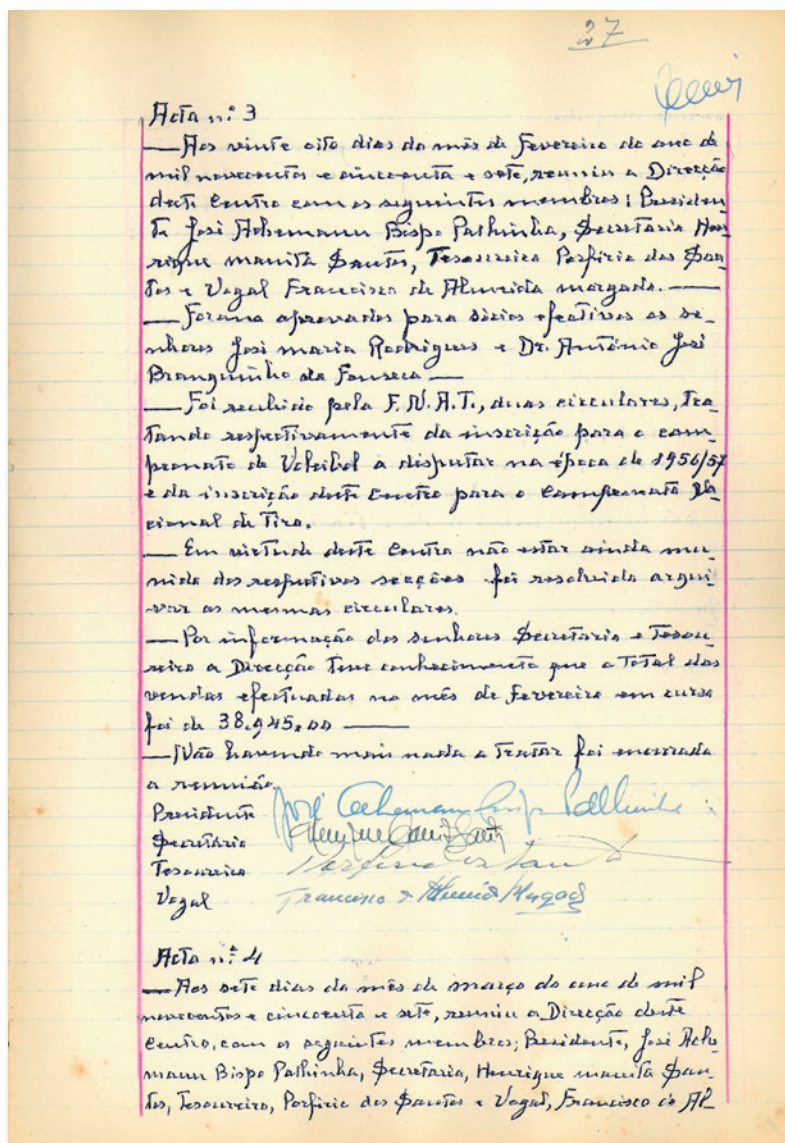 27
Acta n.º 3
— Aos vinte oito dias do mês de Fevereiro do ano de
mil novecentos e cincoenta e sete, reuniu a Direcção
deste Centro com os seguintes membros: Presiden-
te José Achemann Bispo Palhinha, Secretário Hen-
rique Manita Santos, Tesoureiro Porfírio dos San-
tos e Vogal Francisco de Almeida Morgado. —
— Foram aprovados para sócios efectivos os se-
nhores José Maria Rodrigues e Dr. António José
Branquinho da Fonseca —
— Foi recebido pela F.N.A.T., duas circulares, tra-
tando respectivamente da inscrição para o cam-
peonato de Voleibol a disputar na época de 1956/57
e da inscrição deste Centro para o Campeonato Na-
cional de Tiro.
— Em virtude deste Centro não estar ainda mu-
nido das respectivas secções foi resolvido arqui-
var as mesmas circulares.
— Por informação dos senhores Secretário e Tesou-
reiro a Direcção teve conhecimento que o total das
vendas efectuadas no mês de Fevereiro em curso
foi de 38.945,00 —
— Não havendo mais nada a tratar foi encerrada
a reunião.
Presidente José Achemann Bispo Palhinha
Secretário Henrique Manita Santos
Tesoureiro Porfírio dos Santos
Vogal Francisco de Almeida Morgado
Acta n.º 4
— Aos sete dias do mês de Março do ano de mil
novecentos e cincoenta e sete, reuniu a Direcção deste
Centro, com os seguintes membros; Presidente, José Ache-
mann Bispo Palhinha, Secretário, Henrique Manita San-
tos, Tesoureiro, Porfírio dos Santos e Vogal, Francisco de Al-